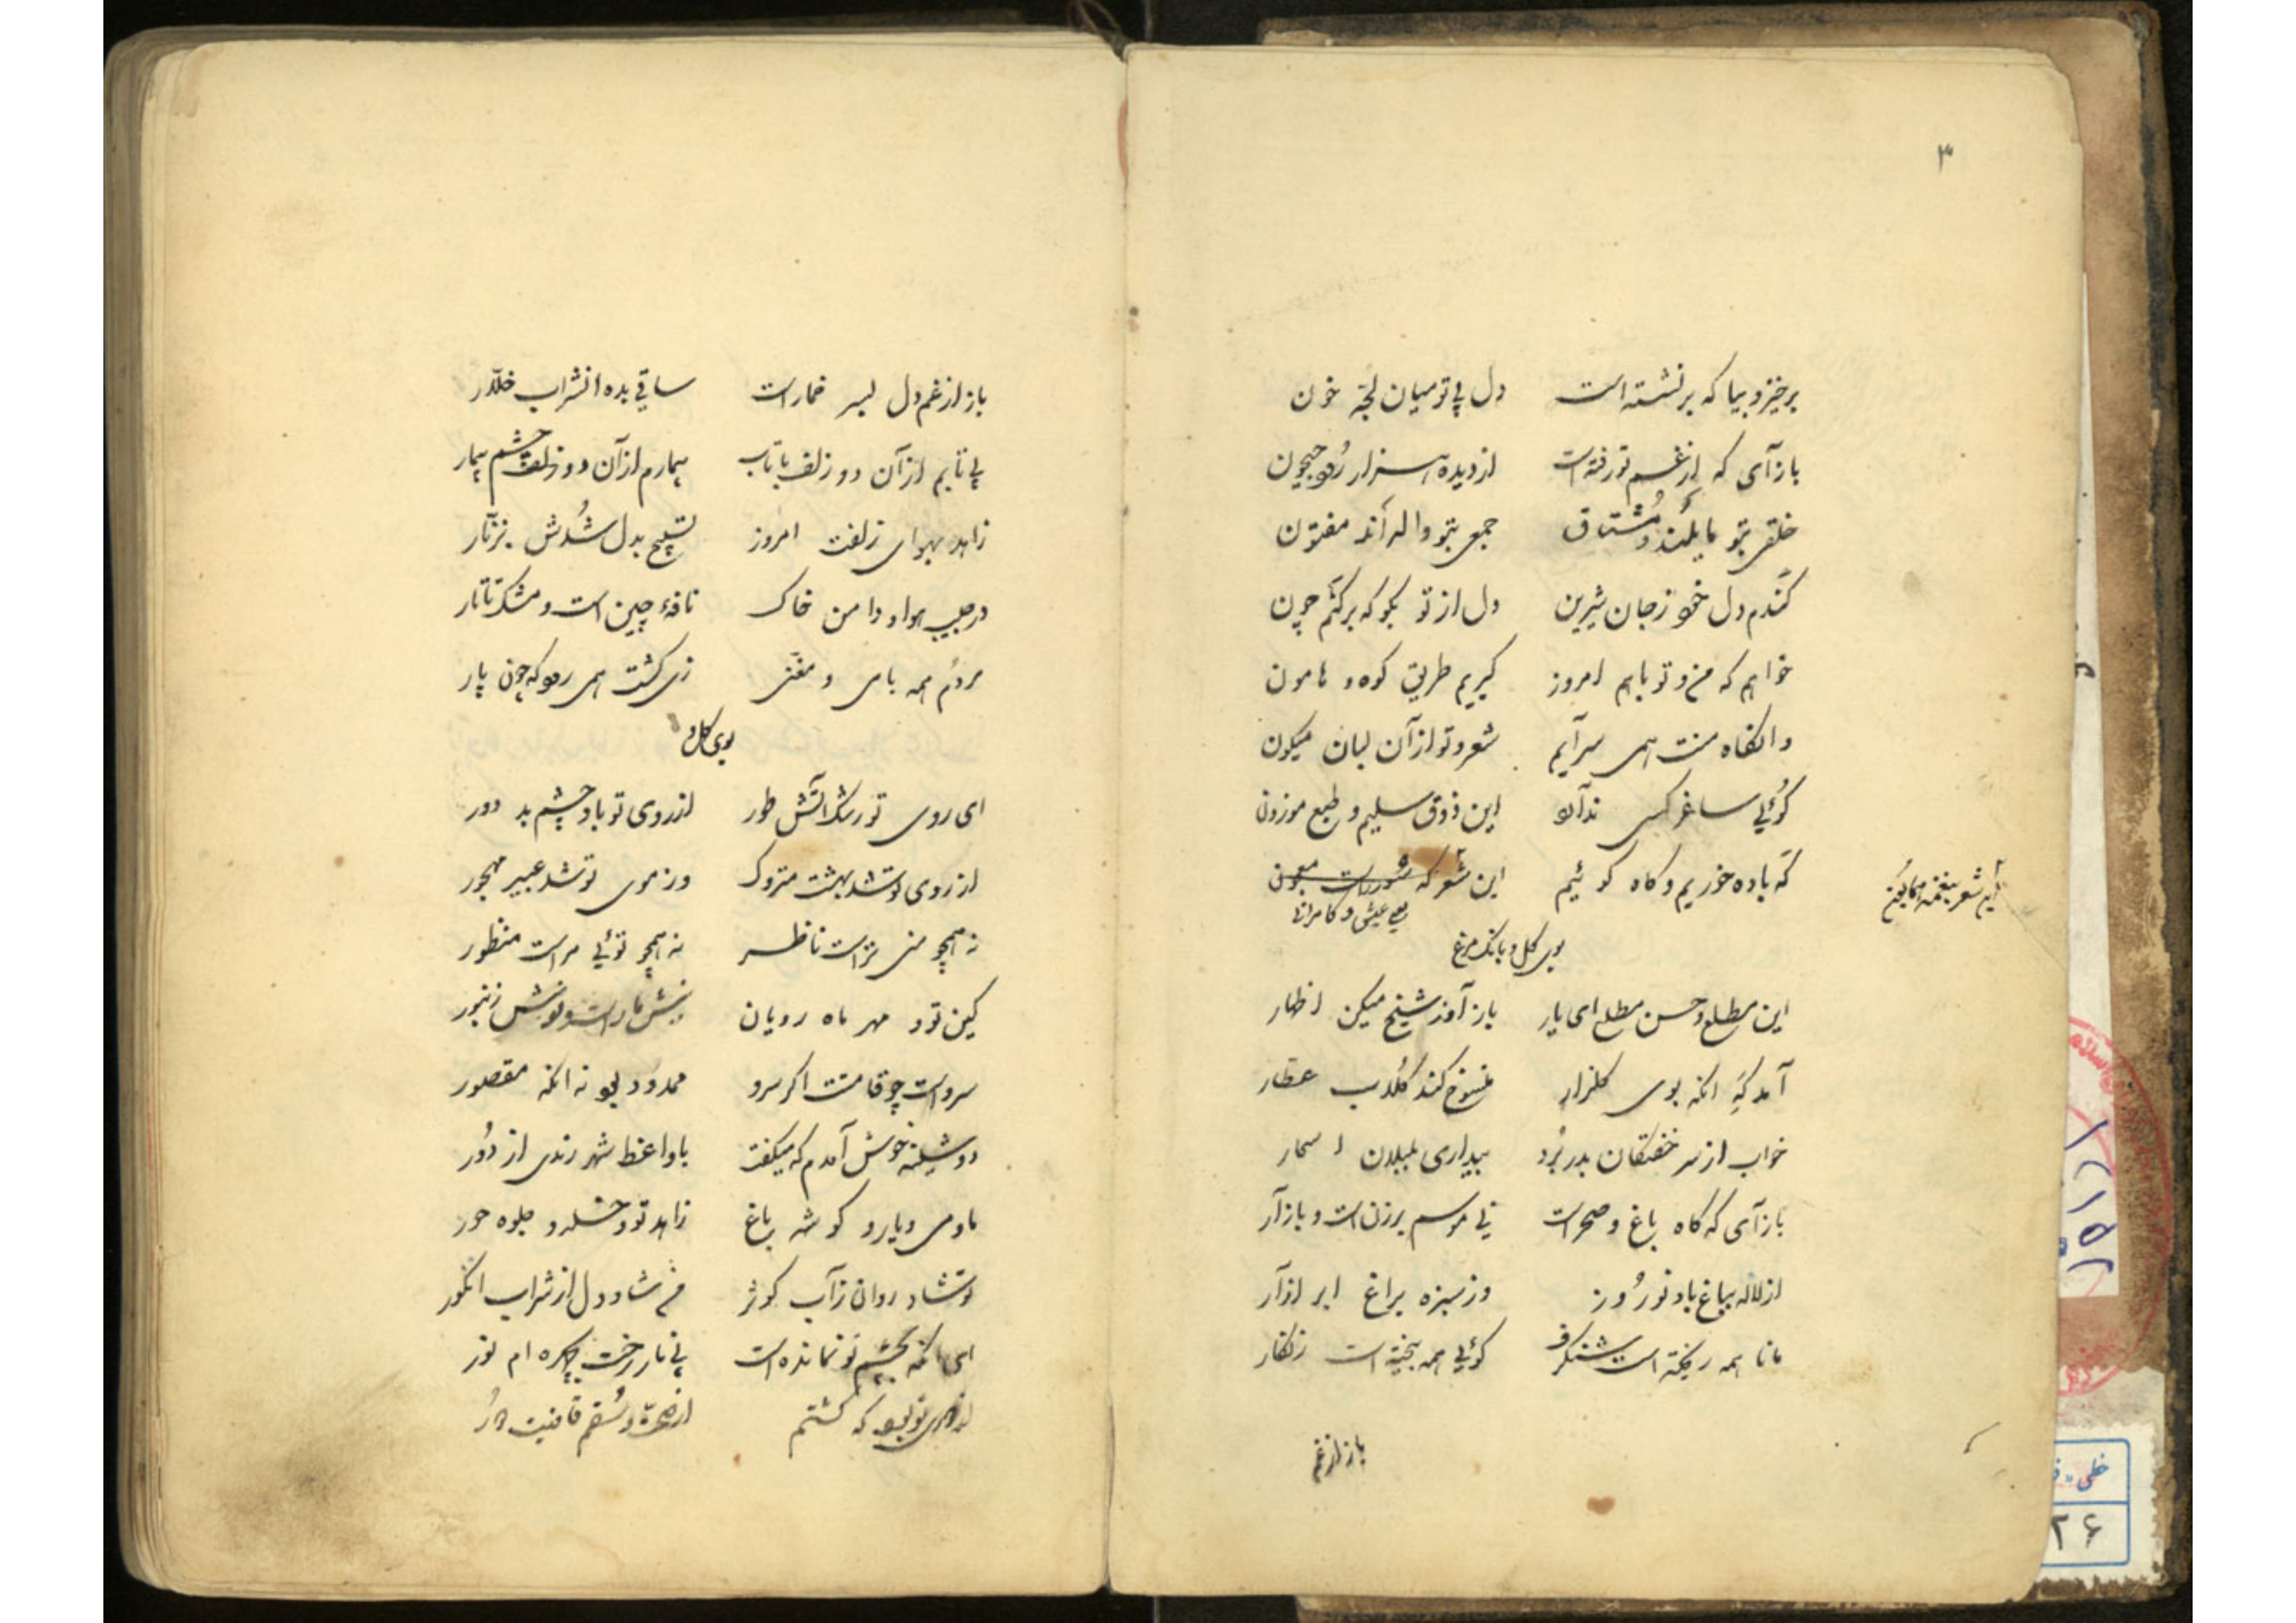 ۳
برخیز و بیا که برنشسته است دل بی تو میان لجّه خون
بازآی که از غم تو رفته است از دیده هزار رود جیحون
خلقی بتو مایلند و مشتاق جمعی بتو واله اند مفتون
کندم دل خود ز جان شیرین دل از تو بگو که برکنم چون
خواهم که من و تو باهم امروز گیریم طریق کوه و هامون
وانگاه منت همی سرآیم شعر و تو از آن لبان میگون
گوئی ساغر کسی ندارد این ذوق سلیم و طبع موزون
گه باده خوریم و گاه گوئیم این شعر که
عیش و کامرانی
این شعر بنغمه
بوی گل و بانک مرغ
این مطلع و حسن مطلع ای یار باز آور شیخ میکن اظهار
آمد گه آنکه بوی گلزار منسوخ کند گلاب عطار
خواب از سر خفتگان بدر برد بیداری بلبلان اسحار
بازآی که گاه باغ و صحراست نی موسم برزن است و بازار
از لاله بباغ باد نوروز وز سبزه براغ ابر آزار
مانا همه ریخته است شنگرف گوئی همه بیخته است زنگار
باز از غم
باز از غم دل بسر خمار است ساقی بده از شراب خلّار
بی تابم از آن دو زلف باتاب بیمارم از آن دو چشم بیمار
زاهد بهوای زلفت امروز تسبیح بدل شدش بزنّار
در جیب هوا و دامن خاک نافهٔ چین است و مشک تاتار
مردم همه با می و مغنّی زی کشت همی رود که چون پار
بوی گل و
ای روی تو رشک آتش طور از روی تو باد چشم بد دور
از روی تو شد بهشت متروک وز موی تو شد عبیر مهجور
نه همچو منی تراست ناظر نه همچو توئی مراست منظور
کین تو و مهر ماه رویان نیش مار است و نوش زنبور
سرو است چو قامتت اگر سرو ممدود بود نه آنکه مقصور
دوشینه خوش آمدم که میگفت با واعظ شهر رندی از دور
ما و می و یار و گوشه باغ زاهد تو و خلد و جلوه حور
تو شاد روان ز آب کوثر من شاد دل از شراب انگور
ای آنکه بچشم تو نمانده است بی نار رخت بچهره ام نور
تو بود که گشتم از صحّة و سقم